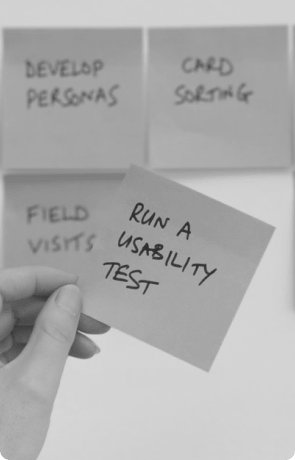 DEVELOP
PERSONAS
CARD
SORTING
FIELD
VISITS
RUN A
USABILITY
TEST